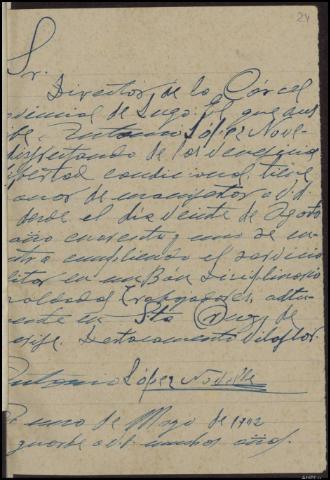 24
Sr.
Director de la Cárcel
vincial de Lugo. El que sus
be, Antonio López Nove
disfrutando de los beneficios
ibertad condicional, tiene
anor de manifestar a Vd.
desde el dia veinte de Agosto
año cuarenta y uno se en
tra cumpliendo el servicio
litar en un Bón Disciplinario
soldados Trabajadores, actu
ente en Sta Cruz de
erife. Destacamento Vilaflor.
Antonio López Novelle
uno de Mayo de 1942
guarde a Vd. muchos años.